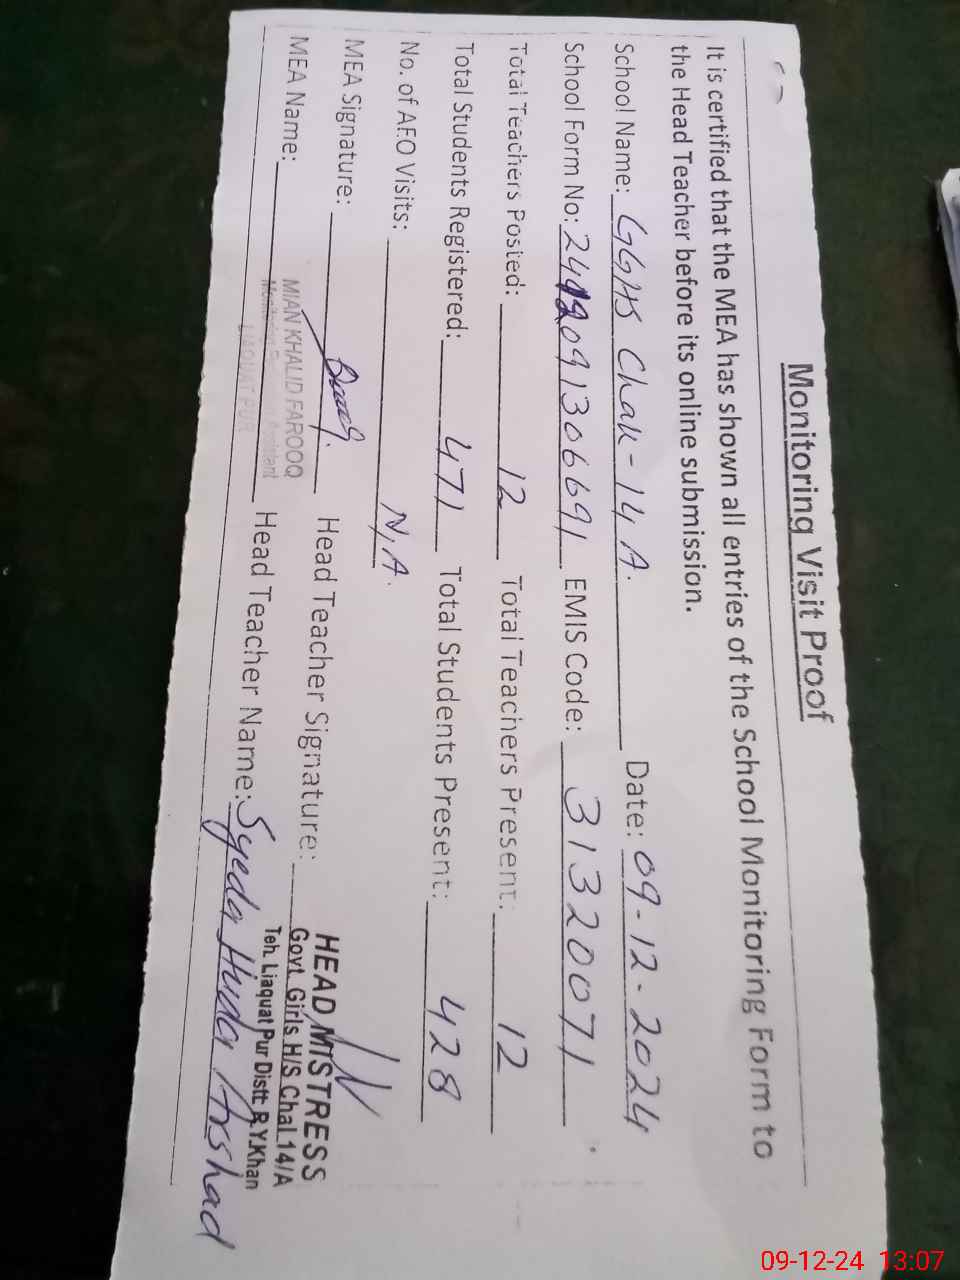 Monitoring Visit Proof
It is certified that the MEA has shown all entries of the School Monitoring Form to
the Head Teacher before its online submission.
School Name: GGHS Chak-14 A. Date: 09-12-2024
School Form No: EMIS Code: 31320071
Total Teachers Posted: 12 Total Teachers Present: 12
Total Students Registered: 471 Total Students Present: 428
No. of AEO Visits: N.A.
MEA Signature: Head Teacher Signature:
MEA Name: Head Teacher Name: Syeda Huda Arshad
MIAN KHALID FAROOQ
Monitoring Assistant
LIAQUAT PUR
HEAD MISTRESS
Govt. Girls H/S Chal.14/A
Teh. Liaquat Pur Distt R.Y.Khan
09-12-24 13:07